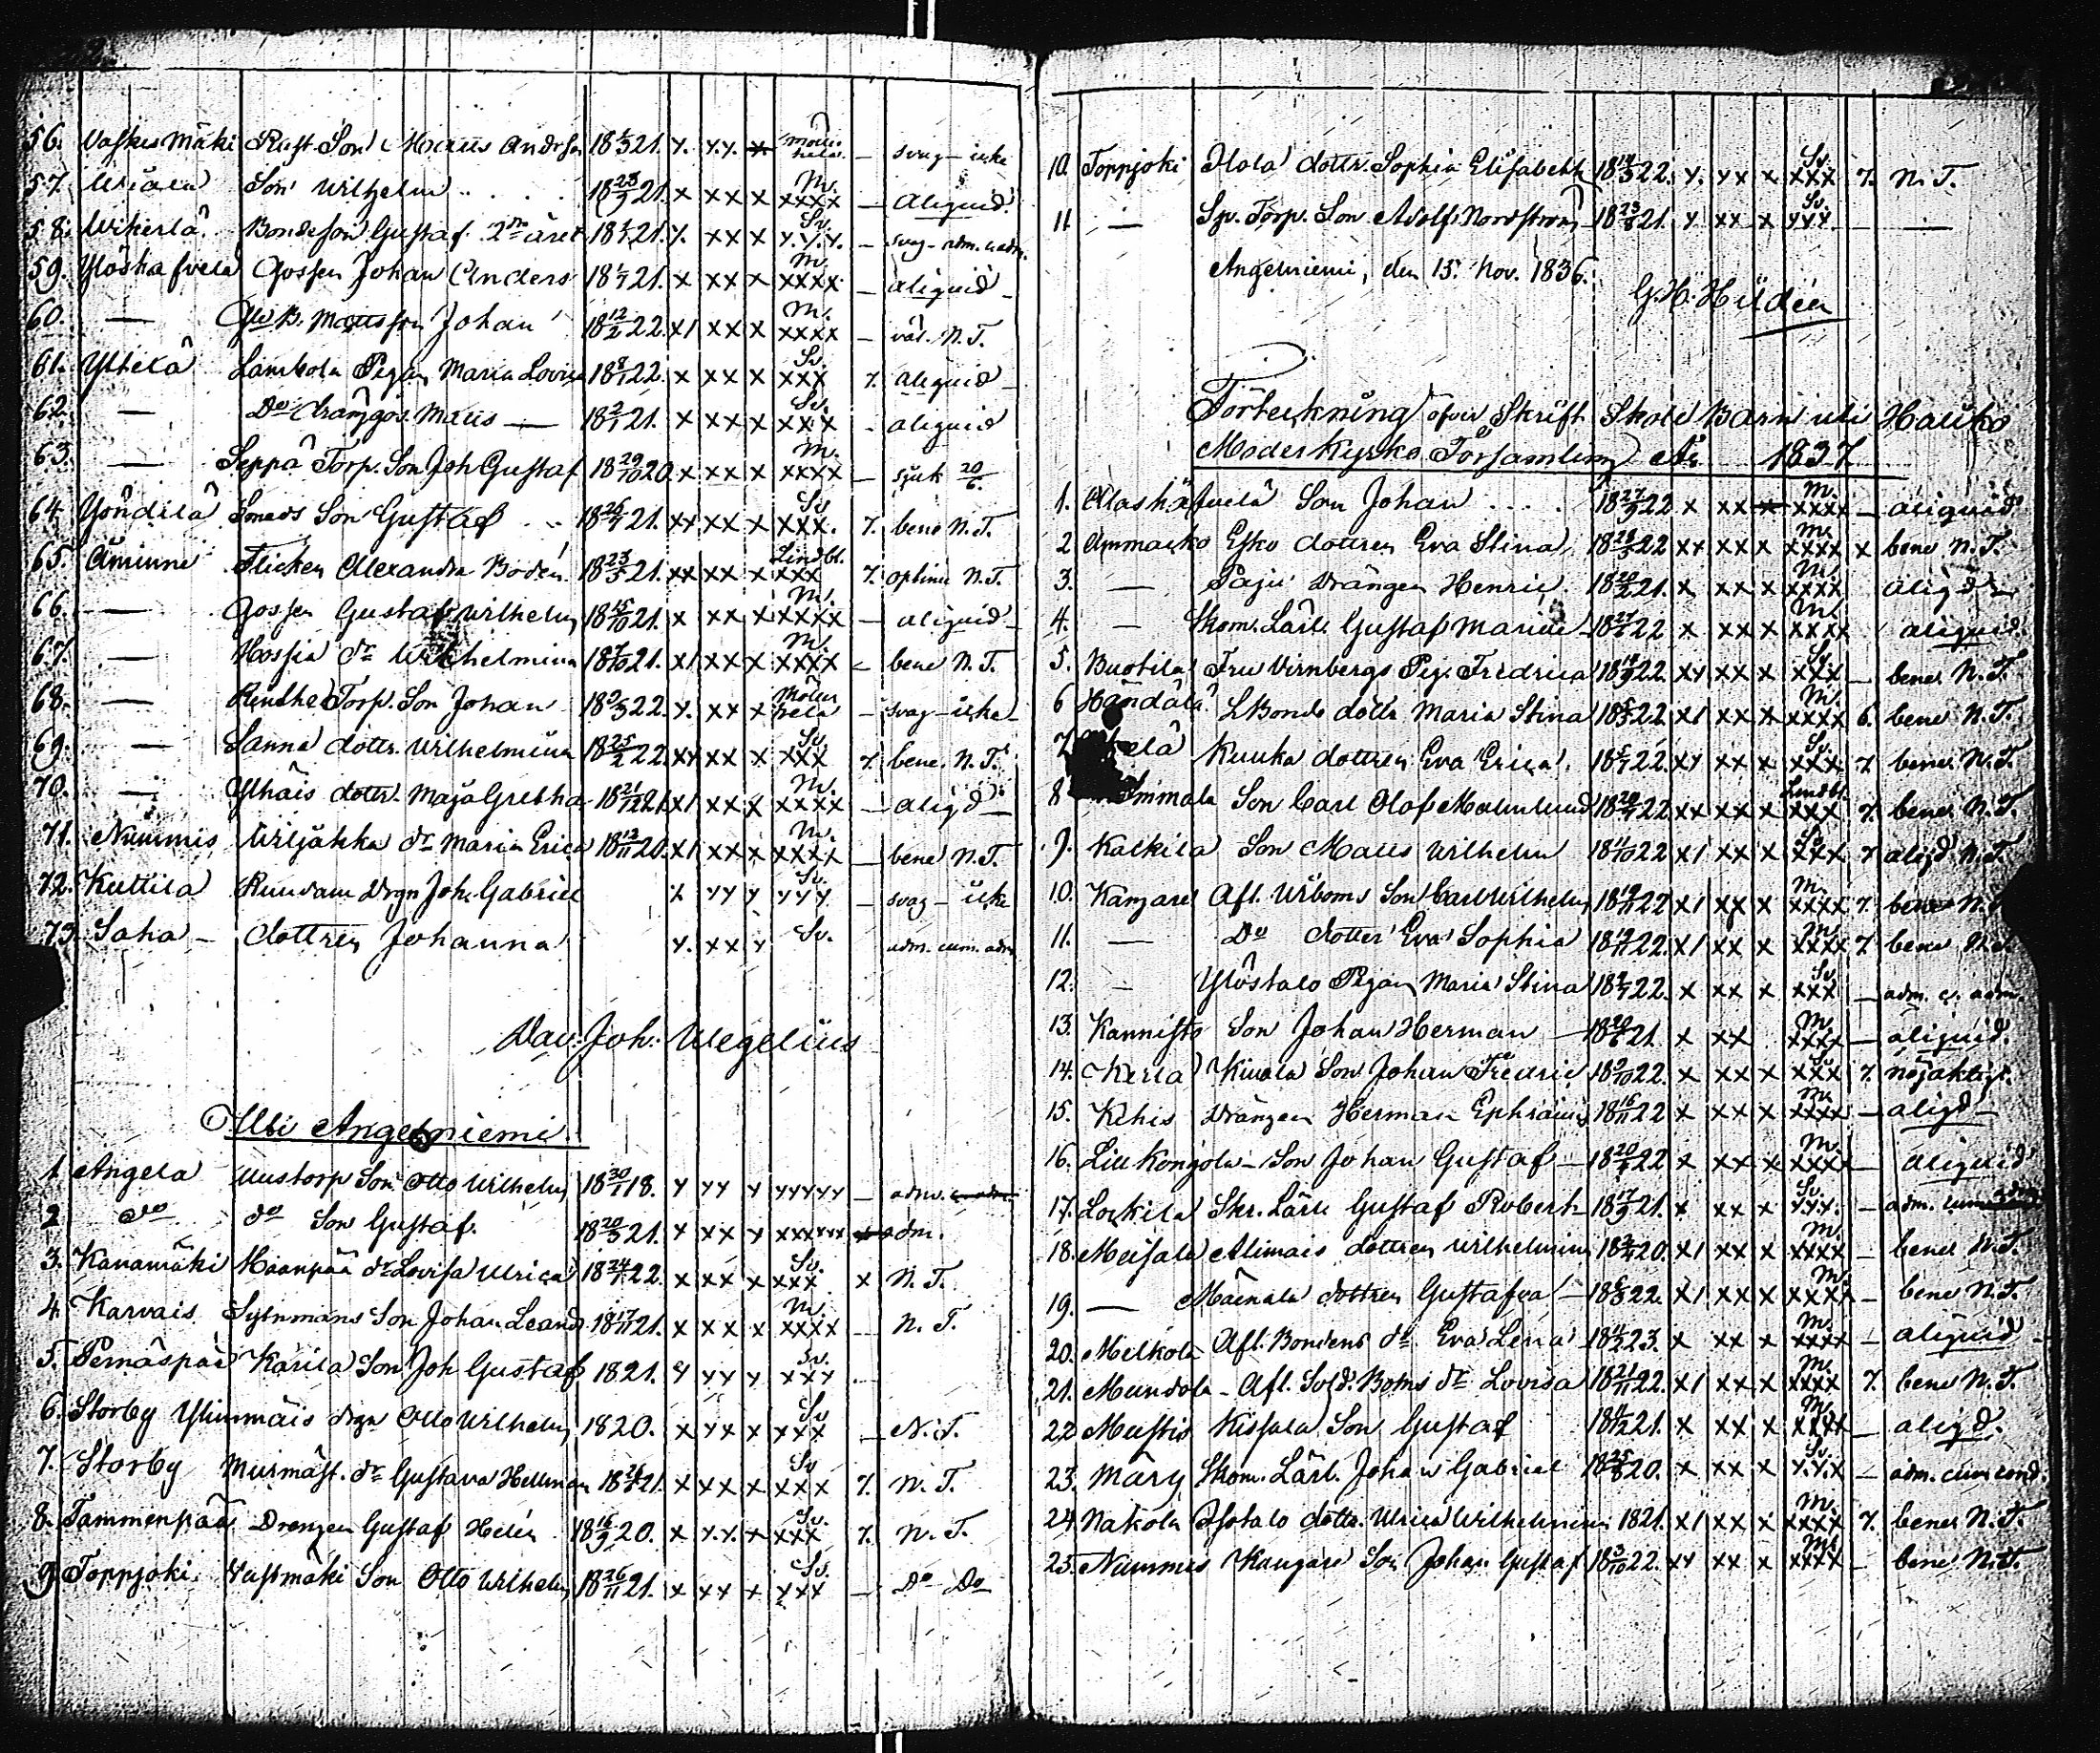 56. Vaskismäki Rust. Son Maus Anders 18 21. x. xx. x. – svag – icke
57. Son Wilhelm 18 23/9 21. x xx x M. xxxx – aliquid.
58. Wikerlä Bondeson Gustaf 2dra året 18 21. x. xx x Sv. x.x.x. – svag – adm. c. adm.
59. Gossen Johan Anders 18 21. x xx x M. xxxx – aliquid –
60. — Johan 18 12/2 22. x1 xx x M. xxxx – väl. N.T.
61. Yltelä Lambola Pigan Maria Lovisa 18 8/1 22. x xx x Sv. xxx 7. aliquid –
62. — Do Maus — 18 2/1 21. x xx x Sv. xxx – aliquid
63. — Seppä Torp. Son Joh Gustaf 18 29/10 20. x xx x M. xxxx – sjuk 20/6.
64. Yöndilä Son Gustaf 18 26/7 21. xx xx x Sv xxx. 7. bene N.T.
65. Åminne Flickan Alexandra Bodén 18 23/5 21. xx xx x Lindbl. xxx 7. optime N.T.
66. — Gossen Gustaf Wilhelm 18 15/10 21. x xx x M. xxxx – aliquid –
67. — Hossia dr Wilhelmina 18 7/10 21. x1 xx x M. xxxx – bene N.T.
68. — Torp. Son Johan 18 22. x. xx x – svag – icke –
69. — Sanna dottr. Wilhelmina 18 25/2 22. xx xx x Sv xxx 7. bene. N.T.
70. — Ylhäis dottr. Maja Gretha 18 21/12 21. x1 xx x M. xxxx – aligd –
71. Nummis Wiljakka dr Maria Erica 18 12/11 20. x1 xx x M. xxxx – bene N.T.
72. Kuttila Joh. Gabriel x xx x Sv. xxx – svag – icke
73. Saha – dottren Johanna x. xx x Sv. adm. cum. adm.
Dav: Joh: Wegelius
Uti Angelniemi.
1. Angela Uustorp Son Otto Wilhelm 18 30/1 18. x xx x xxxxx – adm.
2. do do Son Gustaf. 18 20/3 21. x xx x xxxxx adm.
3. Kanamäki Haanpää dr Lovisa Ulrica 18 24/1 22. x xx x Sv. xxx x N.T.
4. Karvais Son Johan Leand 18 17/11 21. x xx x M. xxxx – N.T.
5. Pernäspää Karila Son Joh Gustaf 1821. x xx x Sv. xxx –
6. Storby Ylimmäis drgn Otto Wilhelm 1820. x xx x Sv xxx – N.T.
7. Storby Murmäst. dr Gustava Hellman 18 21. x xx x Sv xxx 7. N.T.
8. Tammenpää Drengen Gustaf Helén 18 16/9 20. x x.x. x Sv. xxx 7. N.T.
9. Toppjoki Vastmäki Son Otto Wilhelm 18 26/11 21. x xx x Sv. xxx – Do Do
10. Toppjoki Alola dottr. Sophia Elisabeth 18 14/3 22. x. xx x Sv. xxx 7. N.T.
11 — Sp. Torp. Son Adolf Nordström 18 23/8 21. x xx x Sv. xxx – —
Angelniemi, den 15. Nov. 1836.
G.H. Hildén
Förteckning öfver Skrift Skole Barn uti Haliko
Moderkyrko Församling År 1837
1. Son Johan 18 27/9 22 x xx x M. xxxx – aliquid
2 Ammaisko Esko dottren Eva Stina 18 28/3 22 xx xx x M. xxxx x bene N.T.
3. — Paju Drängen Henric 18 20/2 21. x xx x M. xxxx aligd –
4. — Skom. Lärl. Gustaf 18 27/6 22 x xx x M. xxxx aliquid.
5. Buotila Fru Virnbergs Pig. Fredrica 18 14/9 22. xx xx x Sv. xxx – bene N.T.
6 Händälä LBonds dottr Maria Stina 18 22 x1 xx x M. xxxx 6. bene N.T.
7 Kuuka dottren Eva Erica 18 22. xx xx x Sv. xxx 7. bene N.T.
8 Immala Son Carl Olof Malmlund 18 28/7 22 xx xx x Lindbl. xxx 7. bene N.T.
9. Kaikila Son Maus Wilhelm 18 11/10 22 x1 xx x Sv xxx 7 aligd N.T.
10. Kangare Afl. Wiboms Son Carl Wilhelm 18 19/11 22 x1 xx x M. xxxx 7. bene N.
11. — Do dotter Eva Sophia 18 19/11 22. x1 xx x M. xxxx 7. bene N.
12. — Ylöstalo Pigan Maria Stina 18 22. x xx x Sv. xxx – adm. c. adm.
13. Kannisto Son Johan Herman — 18 21 x xx M. xxxx – aliquid.
14. Kerla Kuola Son Johan Fredric 18 9/10 22. x xx x Sv xxx 7. nöjaktigt.
15. Kihis Drängen Herman Ephraim 18 16/11 22 x xx x M. xxxx – aligd –
16. Lill Kongola – Son Johan Gustaf – 18 20/9 22 x xx x M. xxxx – aliquid
17. Lockila Skr. Lärl. Gustaf Robert – 18 17/9 21. x xx x Sv. xxx. – adm. cum
18. Meisala Alimais dottren Wilhelmina 18 20. x1 xx x M. xxxx – bene N.T.
19. — Mäenala dottren Gustafva – 18 22. x1 xx x M. xxxx – bene N.T.
20. Melkola Afl. Bondens dr Eva Lena 18 4/2 23. x xx x M. xxxx – aliquid –
21. Mundola – Afl. Sold. Boms dr Lovisa 18 21/11 22. x1 xx x M. xxxx 7. bene N.T.
22 Mustis Kissala Son Gustaf 18 21. x xx x M. xxxx – aligd.
23. Märy Skom. Lärl. Johan Gabriel 18 25/8 20. x xx x Sv. x.x.x – adm. cum cond.
24 Nakola Isotalo dottr. Ulrica Wilhelmina 1821. x1 xx x M. xxxx 7. bene N.T.
25. Nummis Kangare Son Johan Gustaf 18 3/10 22. xx xx x M. xxxx – bene N.T.